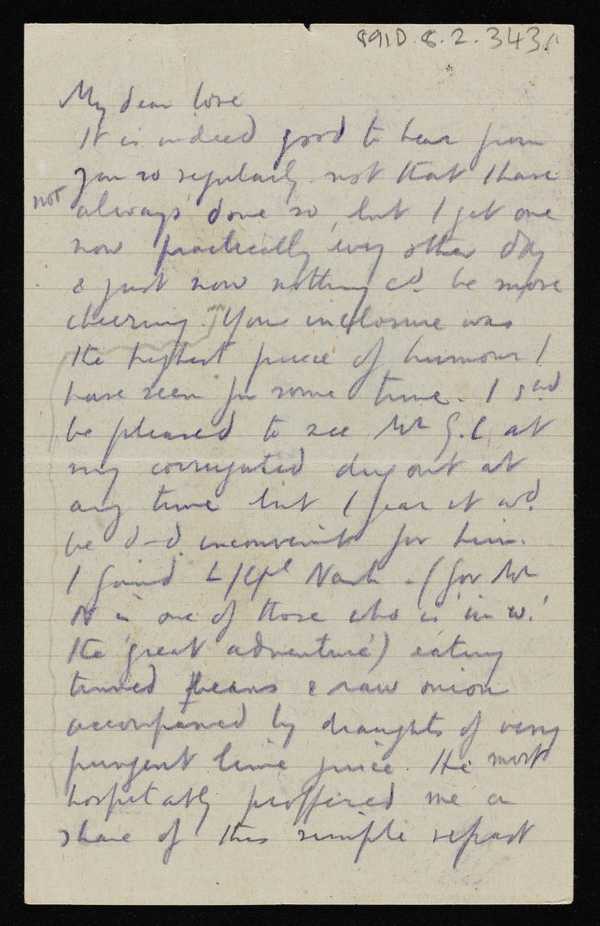 891D.8.2.343
My dear love
It is indeed good to hear from
you so regularly not that I have
not always done so, but I get one
now practically every other day
& just now nothing cd. be more
cheering. Your inclosure was
the highest piece of humour I
have seen for some time. I shd
be pleased to see Mr G.C. at
my corrugated dug out at
any time but I fear it wd.
be d–d inconvenient for him.
I found L/Cpl Nash – (for Mr
N is one of those who is 'in w.'
the 'great adventure') eating
tinned pears & raw onion
accompanied by draughts of very
pungent lime juice. He most
hospitably proffered me a
share of this simple repast